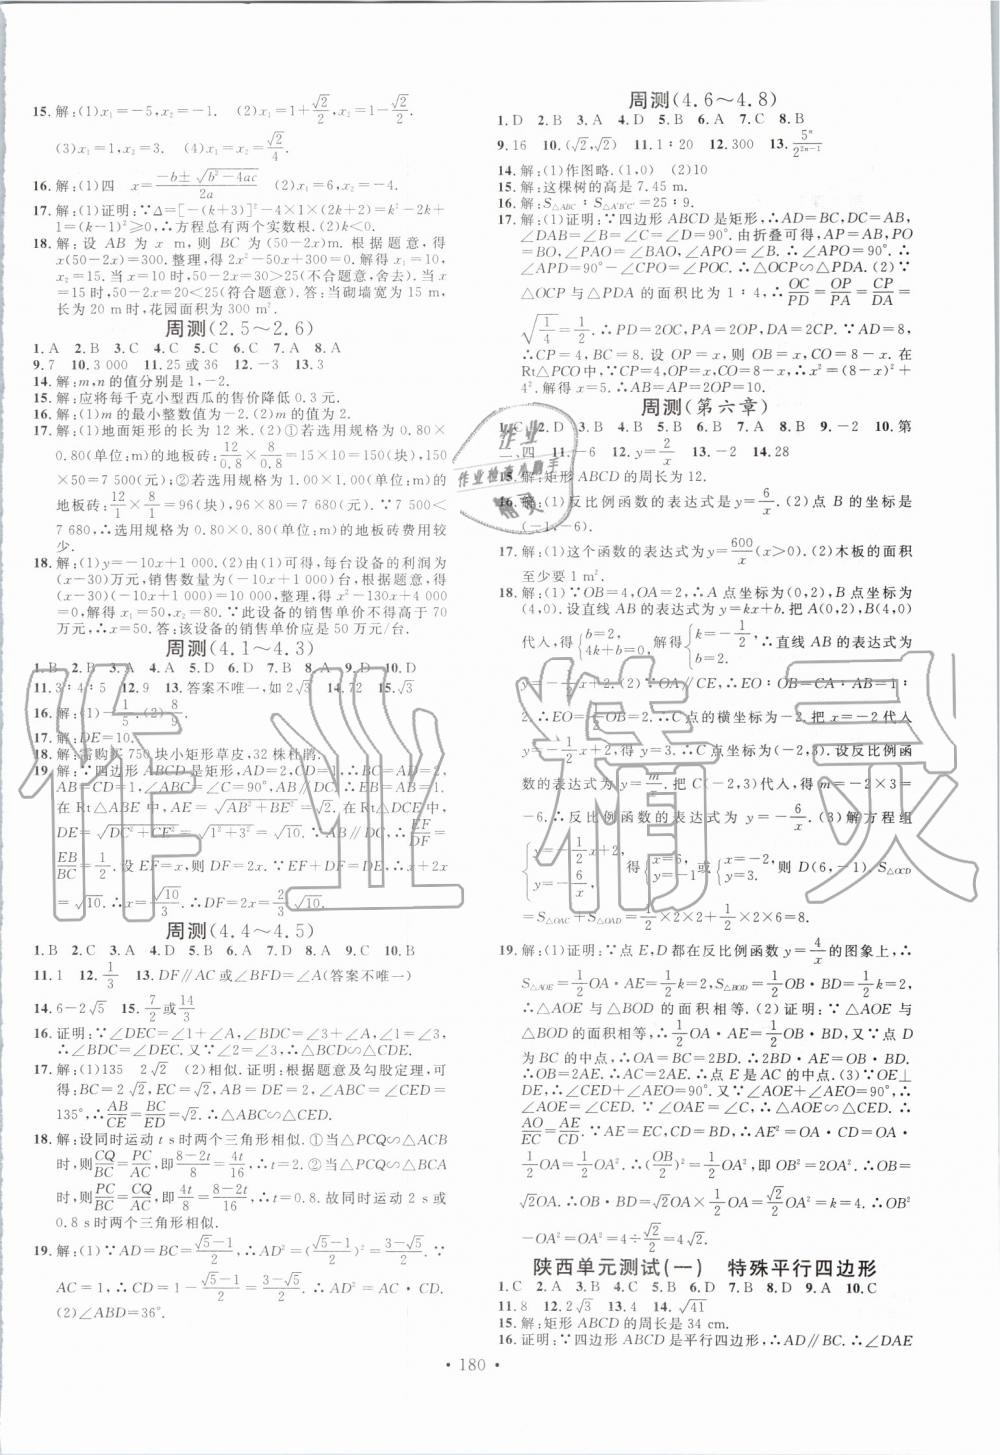 15. 解:(1)x₁=-5,x₂=-1. (2)x₁=1+√2/2,x₂=1-√2/2.
(3)x₁=1,x₂=3. (4)x₁=x₂=√2/4.
16. 解:(1)四 x=(-b±√(b²-4ac))/2a (2)x₁=6,x₂=-4.
17. 解:(1)证明:∵Δ=[-(k+3)]²-4×1×(2k+2)=k²-2k+
1=(k-1)²≥0,∴方程总有两个实数根.(2)k<0.
18. 解:设 AB 为 x m,则 BC 为(50-2x)m.根据题意,得
x(50-2x)=300.整理,得 2x²-50x+300=0.解得 x₁=10,
x₂=15.当 x=10 时,50-2x=30>25(不合题意,舍去).当 x=
15 时,50-2x=20<25(符合题意).答:当砌墙宽为 15 m,
长为 20 m时,花园面积为 300 m².
周测(2.5~2.6)
1. A 2. B 3. C 4. C 5. C 6. C 7. A 8. A
9. 7 10. 3 000 11. 25 或 36 12. -3 13. 3
14. 解:m,n 的值分别是 1,-2.
15. 解:应将每千克小型西瓜的售价降低 0.3 元.
16. 解:(1)m 的最小整数值为-2.(2)m 的值为 2.
17. 解:(1)地面矩形的长为 12 米.(2)①若选用规格为 0.80×
0.80(单位:m)的地板砖:12/0.8×8/0.8=15×10=150(块),150×
50=7 500(元);②若选用规格为 1.00×1.00(单位:m)的
地板砖:12/1×8/1=96(块),96×80=7 680(元).∵7 500<
7 680,∴选用规格为 0.80×0.80(单位:m)的地板砖费用较
少.
18. 解:(1)y=-10x+1 000.(2)由(1)可得,每台设备的利润为
(x-30)万元,销售数量为(-10x+1 000)台.根据题意,得
(x-30)(-10x+1 000)=10 000,整理,得 x²-130x+4 000
=0,解得 x₁=50,x₂=80.∵此设备的销售单价不得高于 70
万元,∴x=50.答:该设备的销售单价应是 50 万元/台.
周测(4.1~4.3)
1. B 2. B 3. A 4. A 5. D 6. D 7. B 8. A 9. D 10. D
11. 3∶4∶5 12. 9 13. 答案不唯一,如 2√3 14. 72 15. √3
16. 解:(1)-1/5.(2)8/9.
17. 解:DE=10.
18. 解:需购买 750 块小矩形草皮,32 株杜鹃.
19. 解:∵四边形 ABCD 是矩形,AD=2,CD=1,∴BC=AD=2,
AB=CD=1,∠ABC=∠C=90°,AB∥DC.∴EB=AB=1.
在 Rt△ABE 中,AE=√(AB²+BE²)=√2.在 Rt△DCE 中,
DE=√(DC²+CE²)=√(1²+3²)=√10.∵AB∥DC,∴EF/DF=
EB/BC=1/2.设 EF=x,则 DF=2x.∵EF+DF=DE,∴x+2x
=√10.∴x=√10/3.∴DF=2x=2√10/3.
周测(4.4~4.5)
1. B 2. C 3. A 4. D 5. D 6. B 7. D 8. C 9. C 10. B
11. 1 12. 1/3 13. DF∥AC 或∠BFD=∠A(答案不唯一)
14. 6-2√5 15. 7/2或14/3
16. 证明:∵∠DEC=∠1+∠A,∠BDC=∠3+∠A,∠1=∠3,
∴∠BDC=∠DEC.又∵∠1=∠2,∴△BDC∽△DEC.
17. 解:(1)135 2√2 (2)相似.证明:根据题意及勾股定理,可
得:BC=2√2,EC=√2,AB=DE=2,∠ABC=∠CED=
135°,∴AB/CE=BC/ED=√2.∴△ABC∽△CED.
18. 解:设同时运动 t s时两个三角形相似.①当△PCQ∽△ACB
时,则CQ/BC=PC/AC,即(8-2t)/8=4t/16,∴t=2;②当△PCQ∽△BCA
时,则PC/BC=CQ/AC,即4t/8=(8-2t)/16,∴t=0.8.故同时运动 2 s 或
0.8 s 时两个三角形相似.
19. 解:(1)∵AD=BC=(√5-1)/2,∴AD²=((√5-1)/2)²=(3-√5)/2.∵
AC=1,∴CD=1-(√5-1)/2=(3-√5)/2.∴AD²=AC·CD.
(2)∠ABD=36°.
周测(4.6~4.8)
1. D 2. B 3. A 4. D 5. B 6. A 7. C 8. B
9. 16 10. (√2,√2) 11. 1∶20 12. 300 13. 5ⁿ/2²ⁿ⁻¹
14. 解:(1)作图略.(1,0) (2)10
15. 解:这棵树的高是 7.45 m.
16. 解:S△ABC∶S△A'B'C'=25∶9.
17. 解:(1)证明:∵四边形 ABCD 是矩形,∴AD=BC,DC=AB,
∠DAB=∠B=∠C=∠D=90°.由折叠可得,AP=AB,PO
=BO,∠PAO=∠BAO,∠APO=∠B.∴∠APO=90°.∴
∠APD=90°-∠CPO=∠POC.∴△OCP∽△PDA.(2)∵
△OCP与△PDA的面积比为1∶4,∴OC/PD=OP/PA=CP/DA=
√(1/4)=1/2.∴PD=2OC,PA=2OP,DA=2CP.∵AD=8,
∴CP=4,BC=8.设 OP=x,则 OB=x,CO=8-x.在
Rt△PCO 中,∵∠C=90°,CP=4,OP=x,CO=8-x,∴x²=(8-x)²+
4².解得 x=5.∴AB=AP=2OP=10.
周测(第六章)
1. C 2. D 3. B 4. A 5. D 6. B 7. A 8. B 9. -2 10. 第
二、四 11. -6 12. y=2/x 13. -2 14. 28
15. 解:矩形 ABCD 的周长为 12.
16. 解:(1)反比例函数的表达式是 y=6/x.(2)点 B 的坐标是
(-1,-6).
17. 解:(1)这个函数的表达式为 y=600/x(x>0).(2)木板的面积
至少要 1 m².
18. 解:(1)∵OB=4,OA=2,∴A 点坐标为(0,2),B点坐标为
(4,0).设直线AB 的表达式为 y=kx+b.把 A(0,2),B(4,0)
代入,得{b=2, 4k+b=0,解得{k=-1/2, b=2.∴直线 AB 的表达式为
y=-1/2x+2.(2)∵OA∥CE,∴EO∶OB=CA∶AB=1∶
2.∴EO=1/2OB=2.∴C点的横坐标为-2.把 x=-2代入
y=-1/2x+2,得 y=3.∴C点坐标为(-2,3).设反比例函
数的表达式为 y=m/x.把 C(-2,3)代入,得 m=-2×3=
-6.∴反比例函数的表达式为 y=-6/x.(3)解方程组
{y=-1/2x+2, y=-6/x, 得{x=6, y=-1或{x=-2, y=3. 则 D(6,-1).S△OCD
=S△OAC+S△OAD=1/2×2×2+1/2×2×6=8.
19. 解:(1)证明:∵点 E,D 都在反比例函数 y=4/x的图象上,∴
S△AOE=1/2OA·AE=1/2k=2,S△BOD=1/2OB·BD=1/2k=2,
∴△AOE 与△BOD 的面积相等.(2)证明:∵△AOE 与
△BOD 的面积相等,∴1/2OA·AE=1/2OB·BD.∵点 D
为 BC 的中点,∴OA=BC=2BD.∴2BD·AE=OB·BD.
∴OB=2AE.∴AE=1/2AC.∴点 E 是 AC 的中点.(3)∵OE⊥
DE,∴∠CED+∠AEO=90°.又∵∠AOE+∠AEO=90°,∴
∠AOE=∠CED.又∵∠OAE=∠C,∴△AOE∽△CED.∴
AO/EC=AE/CD.∵EC=AE,CD=1/2BC=1/2OA,∴AE²=OA·CD=
1/2OA·OA=1/2OA².∴(OB/2)²=1/2OA²,即 OB²=2OA².∴OB=
√2OA.∴OB·BD=√2OA×1/2OA=√2/2OA²=k=4.∴OB²
-OA²=OA²=4÷√2/2=4√2.
陕西单元测试(一) 特殊平行四边形
1. C 2. A 3. D 4. C 5. B 6. D 7. B 8. D 9. A 10. C
11. 8 12. 2√3 13. 4 14. √41
15. 解:矩形 ABCD 的周长为 34 cm.
16. 证明:∵四边形 ABCD是平行四边形,∴AD∥BC.∴∠DAE
·180·
作业检查小助手
作业精灵